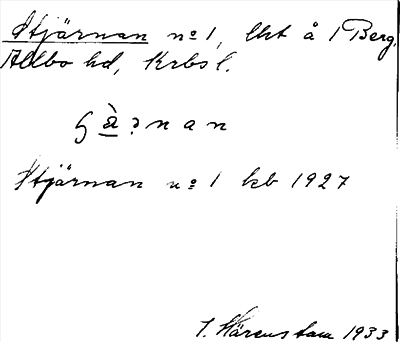 Stjärnan nº 1, lht å 1 Berg,
Allbo hd, Krbs l.
ɧà̠ɂnan
Stjärnan nº 1 kb 1927
I. Härenstam 1933